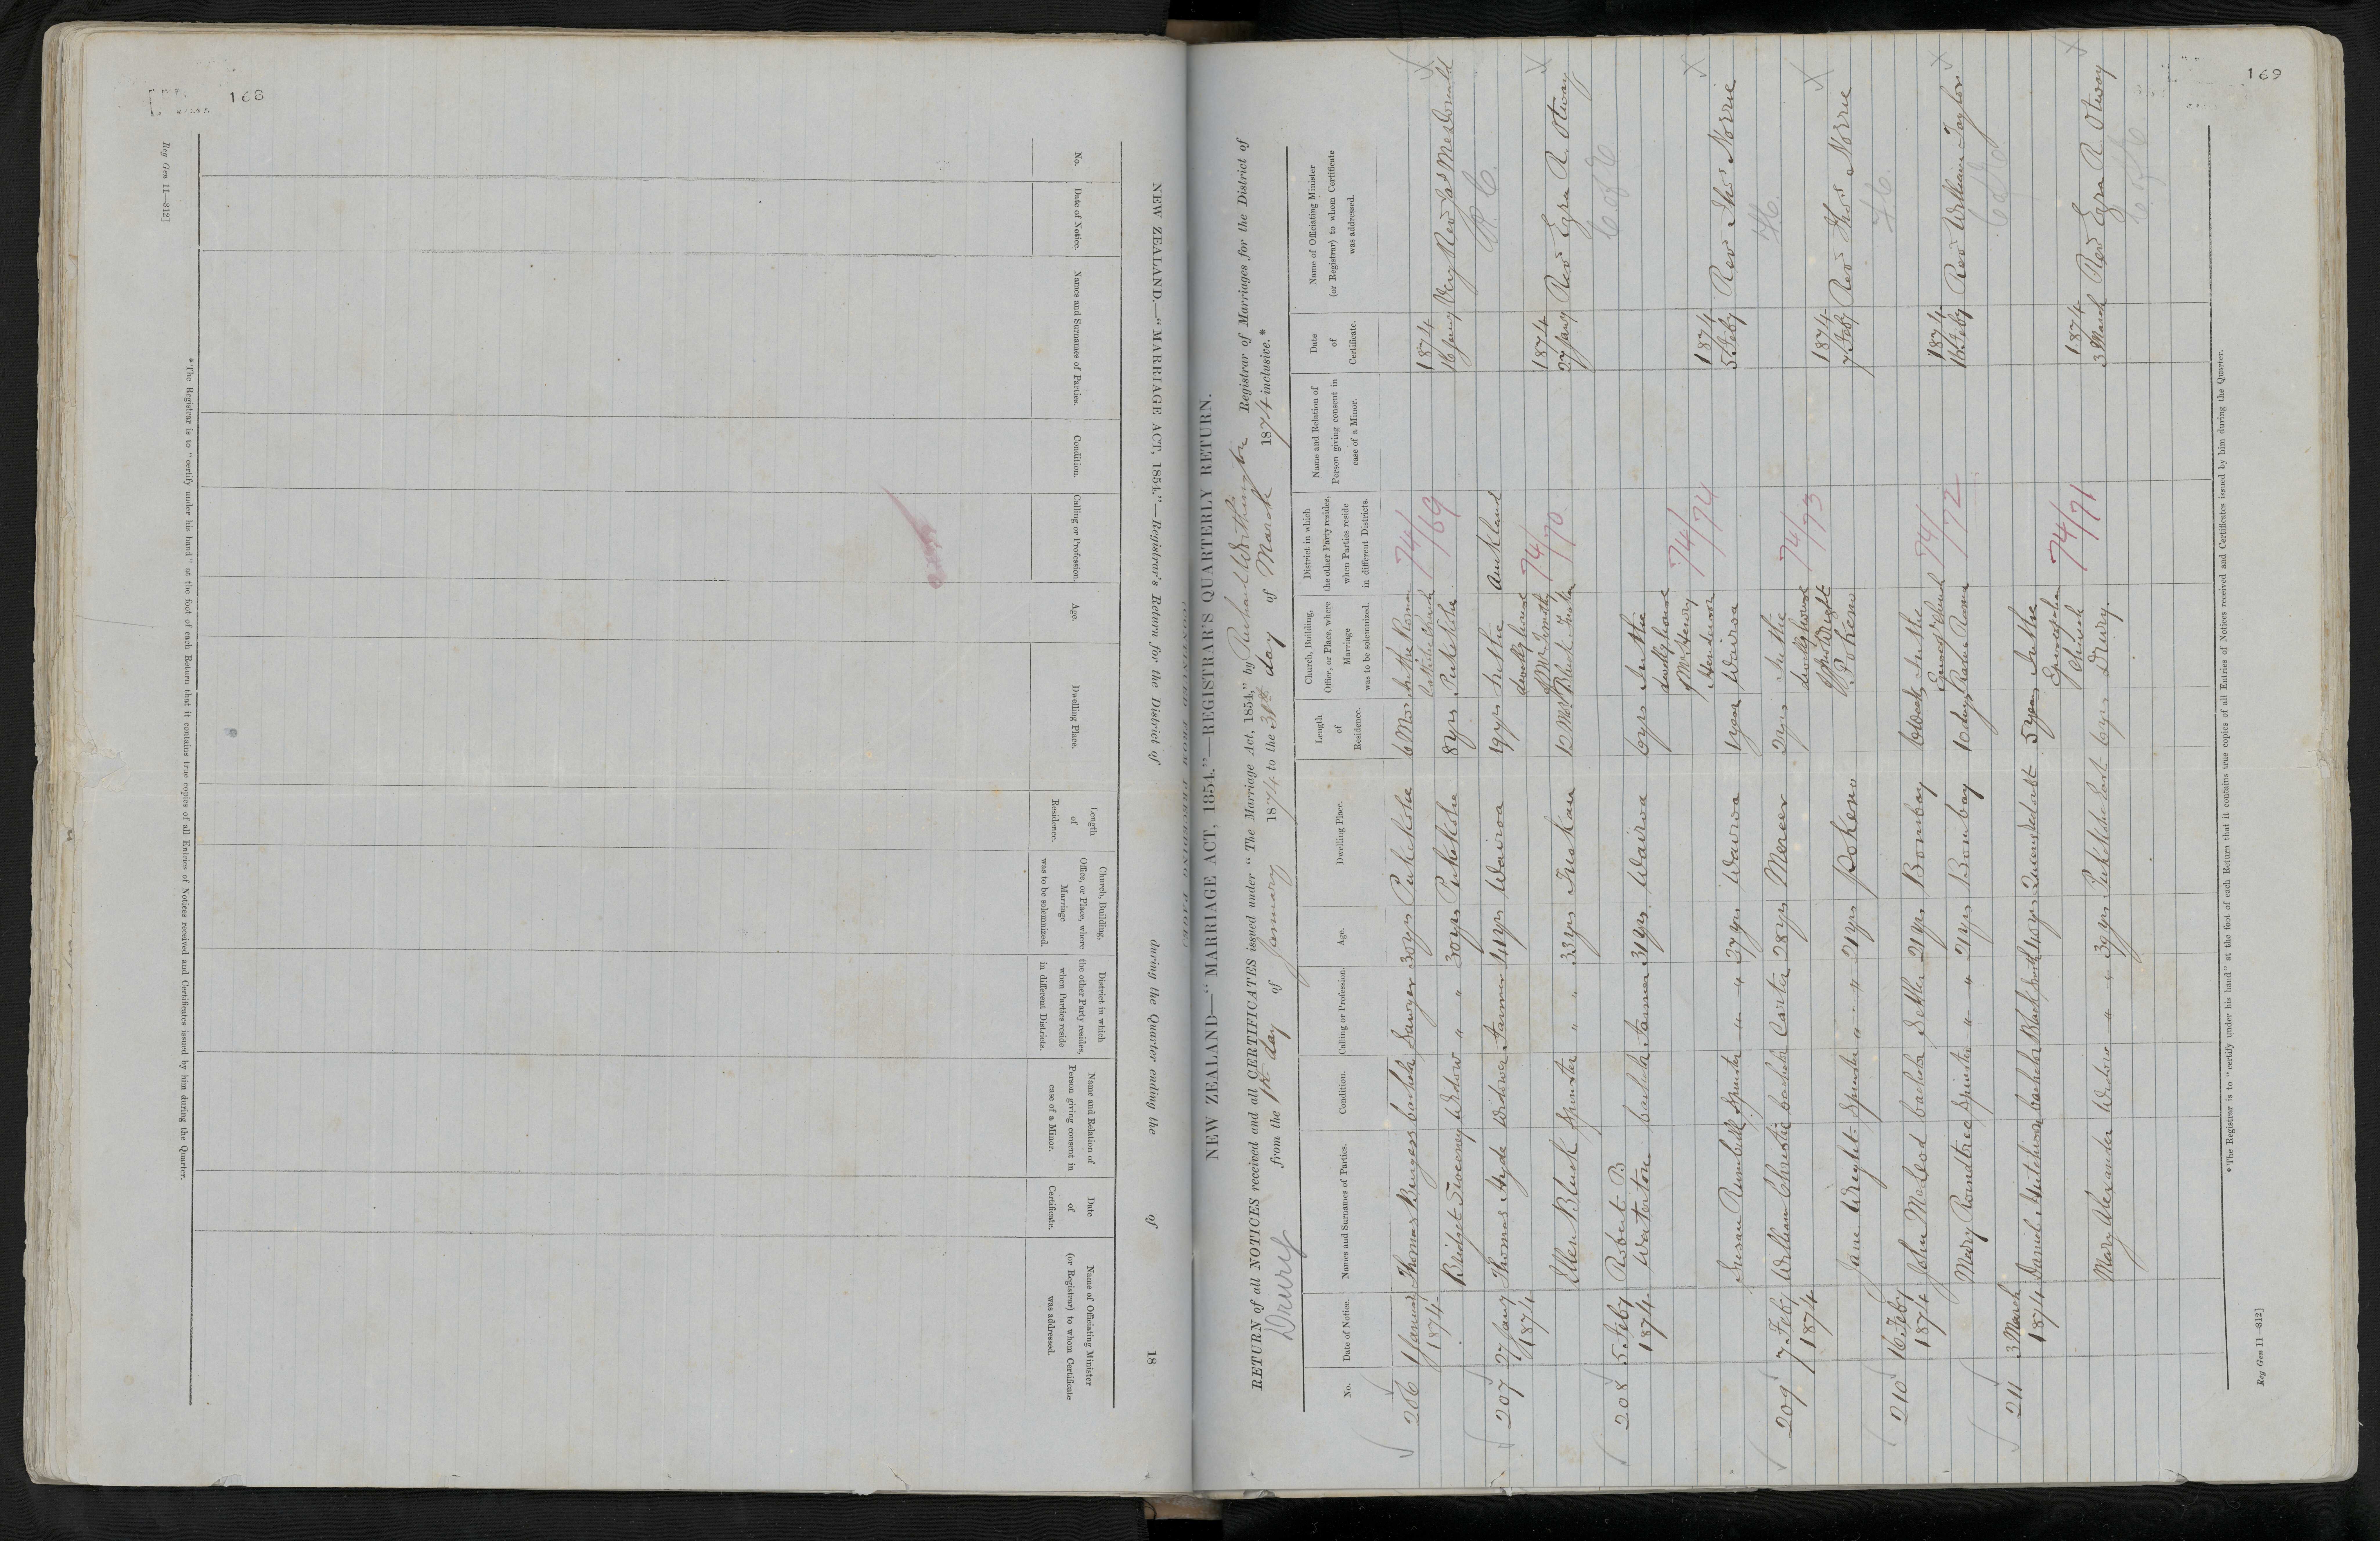 168
Reg Gen 11—312]
NEW ZEALAND.—"MARRIAGE ACT, 1854."—Registrar's Return for the District of during the Quarter ending the of 18
No.
Date of Notice.
Names and Surnames of Parties.
Condition.
Calling or Profession.
Age.
Dwelling Place.
Length of Residence.
Church, Building, Office, or Place, where Marriage was to be solemnized.
District in which the other Party resides, when Parties reside in different Districts.
Name and Relation of Person giving consent in case of a Minor.
Date of Certificate.
Name of Officiating Minister (or Registrar) to whom Certificate was addressed.
*The Registrar is to "certify under his hand" at the foot of each Return that it contains true copies of all Entries of Notices received and Certificates issued by him during the Quarter.
169
NEW ZEALAND—"MARRIAGE ACT, 1854."—REGISTRAR'S QUARTERLY RETURN.
RETURN of all NOTICES received and all CERTIFICATES issued under "The Marriage Act, 1854," by Registrar of Marriages for the District of
Drury from the 1st day of January 1874 to the 31st day of March 1874 inclusive.*
No.
Date of Notice.
Names and Surnames of Parties.
Condition.
Calling or Profession.
Age.
Dwelling Place.
Length of Residence.
Church, Building, Office, or Place, where Marriage was to be solemnized.
District in which the other Party resides, when Parties reside in different Districts.
Name and Relation of Person giving consent in case of a Minor.
Date of Certificate.
Name of Officiating Minister (or Registrar) to whom Certificate was addressed.
206 Thomas bachelor Sawyer 30 yrs Pukekohe 6 Mos In the Roman 74/ 1874
1874 Catholic Church /69 16 Jany Very Revd Jas McDonald
Bridget Sweeney Widow " " 30 yrs Pukekohe 8 yrs Pukekohe R.C.
207 27 Jany Thomas Hyde Widower Farmer 41 yrs Wairoa 19 yrs In the Auckland
1874 dwelling house 74/ 1874
of Mr /70 27 Jany Revd Ezra R. Otway
Ellen Black Spinster " " 33 yrs 12 Mos C of E
208 5 Feby Robert B
1874 bachelor Farmer 31 yrs Wairoa 6 yrs In the
dwelling house
of Mr Henry 74/ 1874
Henderson /74 5 Feby Rev Thos Norrie
Susan Spinster " " 37 yrs Wairoa 1 year Wairoa
209 7 Feby William Christie bachelor Carter 28 yrs Mercer 2 yrs In the
1874 dwelling house 74/ 1874
/73 7 Feby Rev Thos Norrie
Jane Wright Spinster " " 21 yrs Pokeno Pokeno
210 16 Feby John bachelor Settler 21 yrs Bombay In the 74/ 1874
1874 /72 16 Feby Revd William Taylor
Mary Roundtree Spinster " " 21 yrs Bombay 10 days
211 3 March
1874 Daniel bachelor Blacksmith 5 yrs In the
Episcopalian 74/ 1874
Church /71 3 March Revd Ezra R Otway
Mary Alexander Widow " " 39 yrs 6 yrs Drury. C of E
*The Registrar is to "certify under his hand" at the foot of each Return that it contains true copies of all Entries of Notices received and Certificates issued by him during the Quarter.
Reg Gen 11—312]